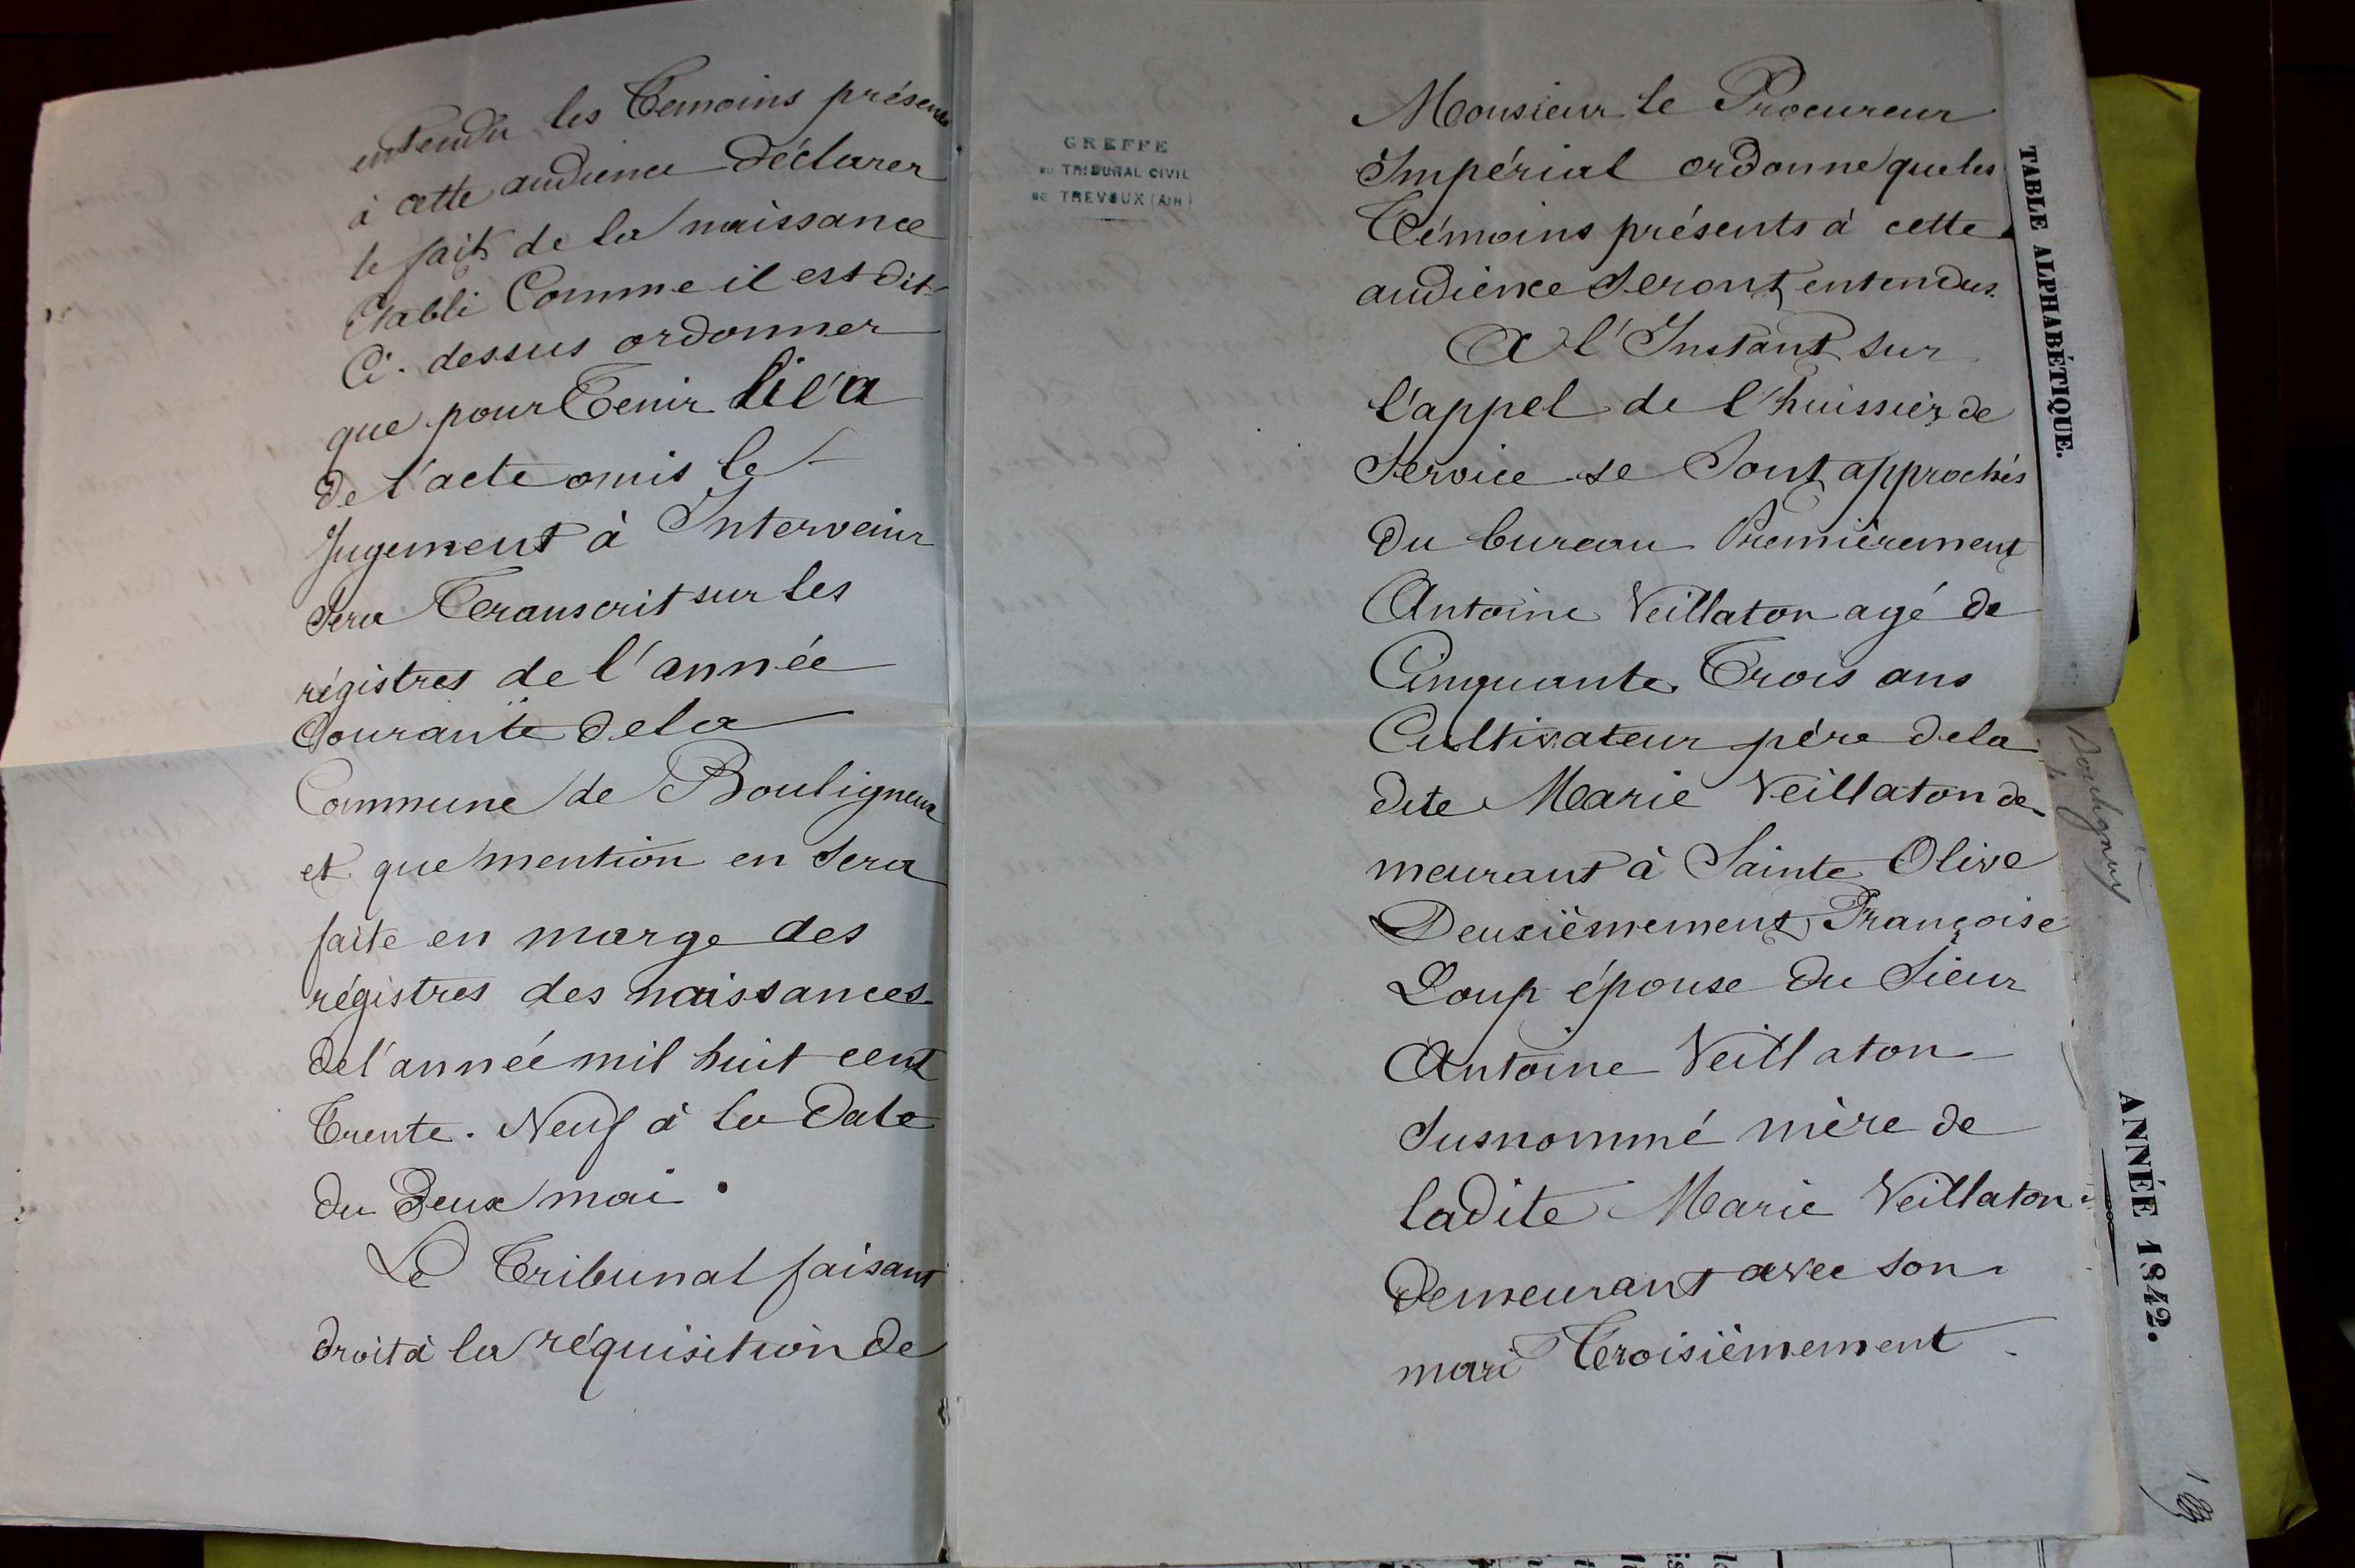 entendu les Temoins présents
à cette audience déclarer
le fait de la naissance
Etabli Comme il est dit
Ci-dessus ordonner
que pour Tenir lieu
de l'acte omis le
Jugement à Intervenir
Sera Transcrit sur les
régistres de l'année
Courante de la
Commune de Bouligneux
et que mention en Sera
faite en marge des
régistres des naissances
de l'année mil huit cent
Trente-Neuf à la Date
du Deux mai.
Le Tribunal faisant
droit à la réquisition de
GREFFE
DU TRIBUNAL CIVIL
DE TREVOUX (AIN)
Monsieur le Procureur
Impérial ordonne que les
Témoins présents à cette
audience Seront entendus.
A l'Instant sur
l'appel de l'huissier de
Service se Sont approchés
du bureau Premièrement
Antoine Veillaton agé de
Cinquante Trois ans
Cultivateur père de la
dite Marie Veillaton de-
meurant à Sainte Olive
Deuxièmement Françoise
Loup épouse du Sieur
Antoine Veillaton
Susnommé mère de
ladite Marie Veillaton
Demeurant avec son
mari Troisièmement
TABLE ALPHABÉTIQUE.
ANNÉE 1842.